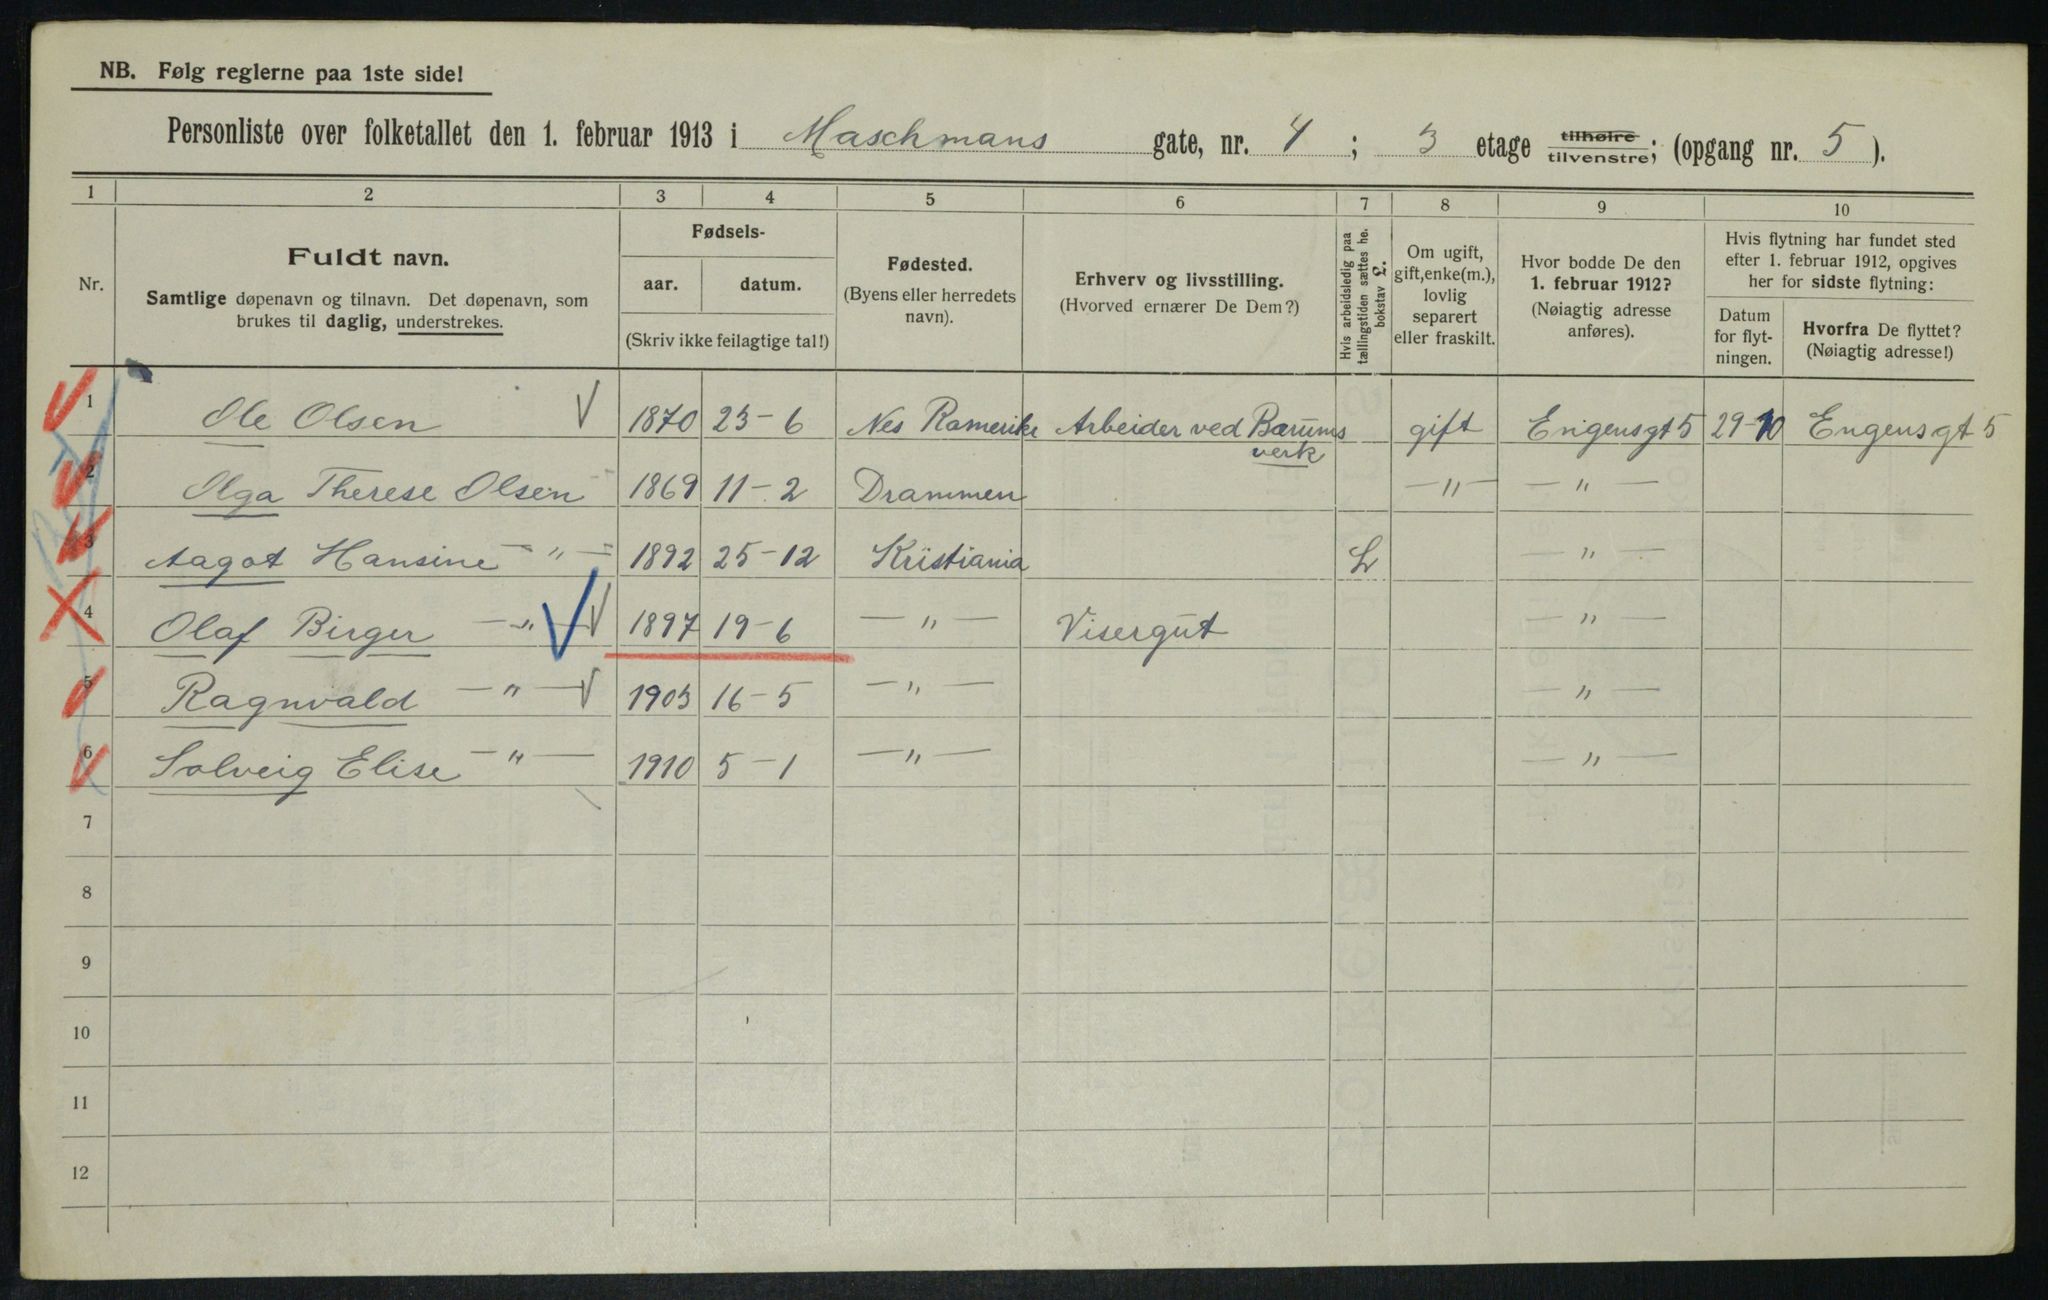 NB. Følg reglerne paa 1ste side!
Personliste over folketallet den 1. februar 1913 i Maschmans gate, nr. 4 ; 3 etage tilhøire tilvenstre; (opgang nr. 5 ).
1 2 3 4 5 6 7 8 9 10
Nr.
Fuldt navn.
Samtlige døpenavn og tilnavn. Det døpenavn, som
brukes til daglig, understrekes.
Fødsels-
aar. datum.
(Skriv ikke feilagtige tal!)
Fødested.
(Byens eller herredets
navn).
Erhverv og livsstilling.
(Hvorved ernærer De Dem?)
Hvis arbeidsledig paa
tællingstiden sættes he.
bokstav L.
Om ugift,
gift, enke(m.),
lovlig
separert
eller fraskilt.
Hvor bodde De den
1. februar 1912?
(Nøiagtig adresse
anføres).
Hvis flytning har fundet sted
efter 1. februar 1912, opgives
her for sidste flytning:
Datum
for flyt-
ningen.
Hvorfra De flyttet?
(Nøiagtig adresse!)
1 Ole Olsen 1870 23-6 Nes Romerike Arbeider ved Bærums verk gift Engensgt 5 29-10 Engensgt 5
2 Olga Therese Olsen 1869 11-2 Drammen —"— —"—
3 Aagot Hansine —"— 1892 25-12 Kristiania L —"—
4 Olaf Birger —"— 1897 19-6 —"— Visergut —"—
5 Ragnvald —"— 1903 16-5 —"— —"—
6 Solveig Elise —"— 1910 5-1 —"— —"—
7
8
9
10
11
12